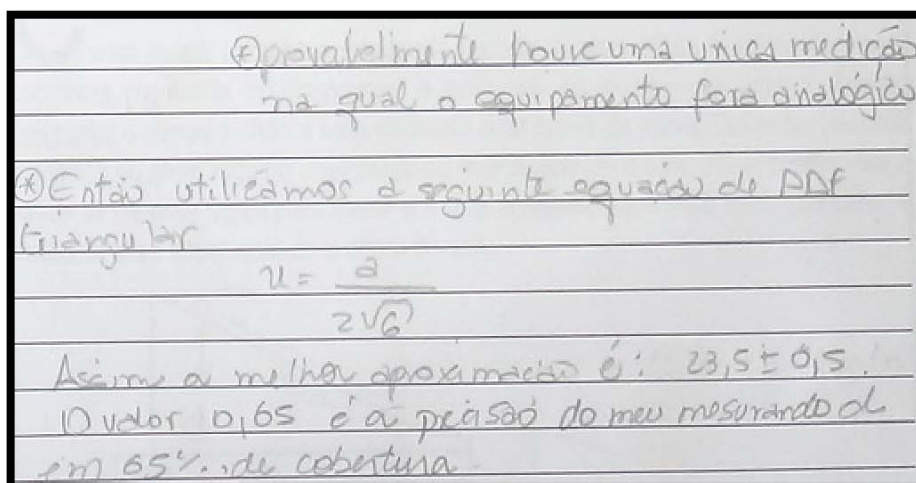 ⊛provabelmente houve uma unica medição
na qual o equipamento fora analógico
⊛Então utilizamos a seguinte equação do PDF
triangular
u = a
2√6
Assim a melhor aproximação é: 23,5 ± 0,5.
O valor 0,65 é a precisão do meu mesurando d
em 65%. de cobertura